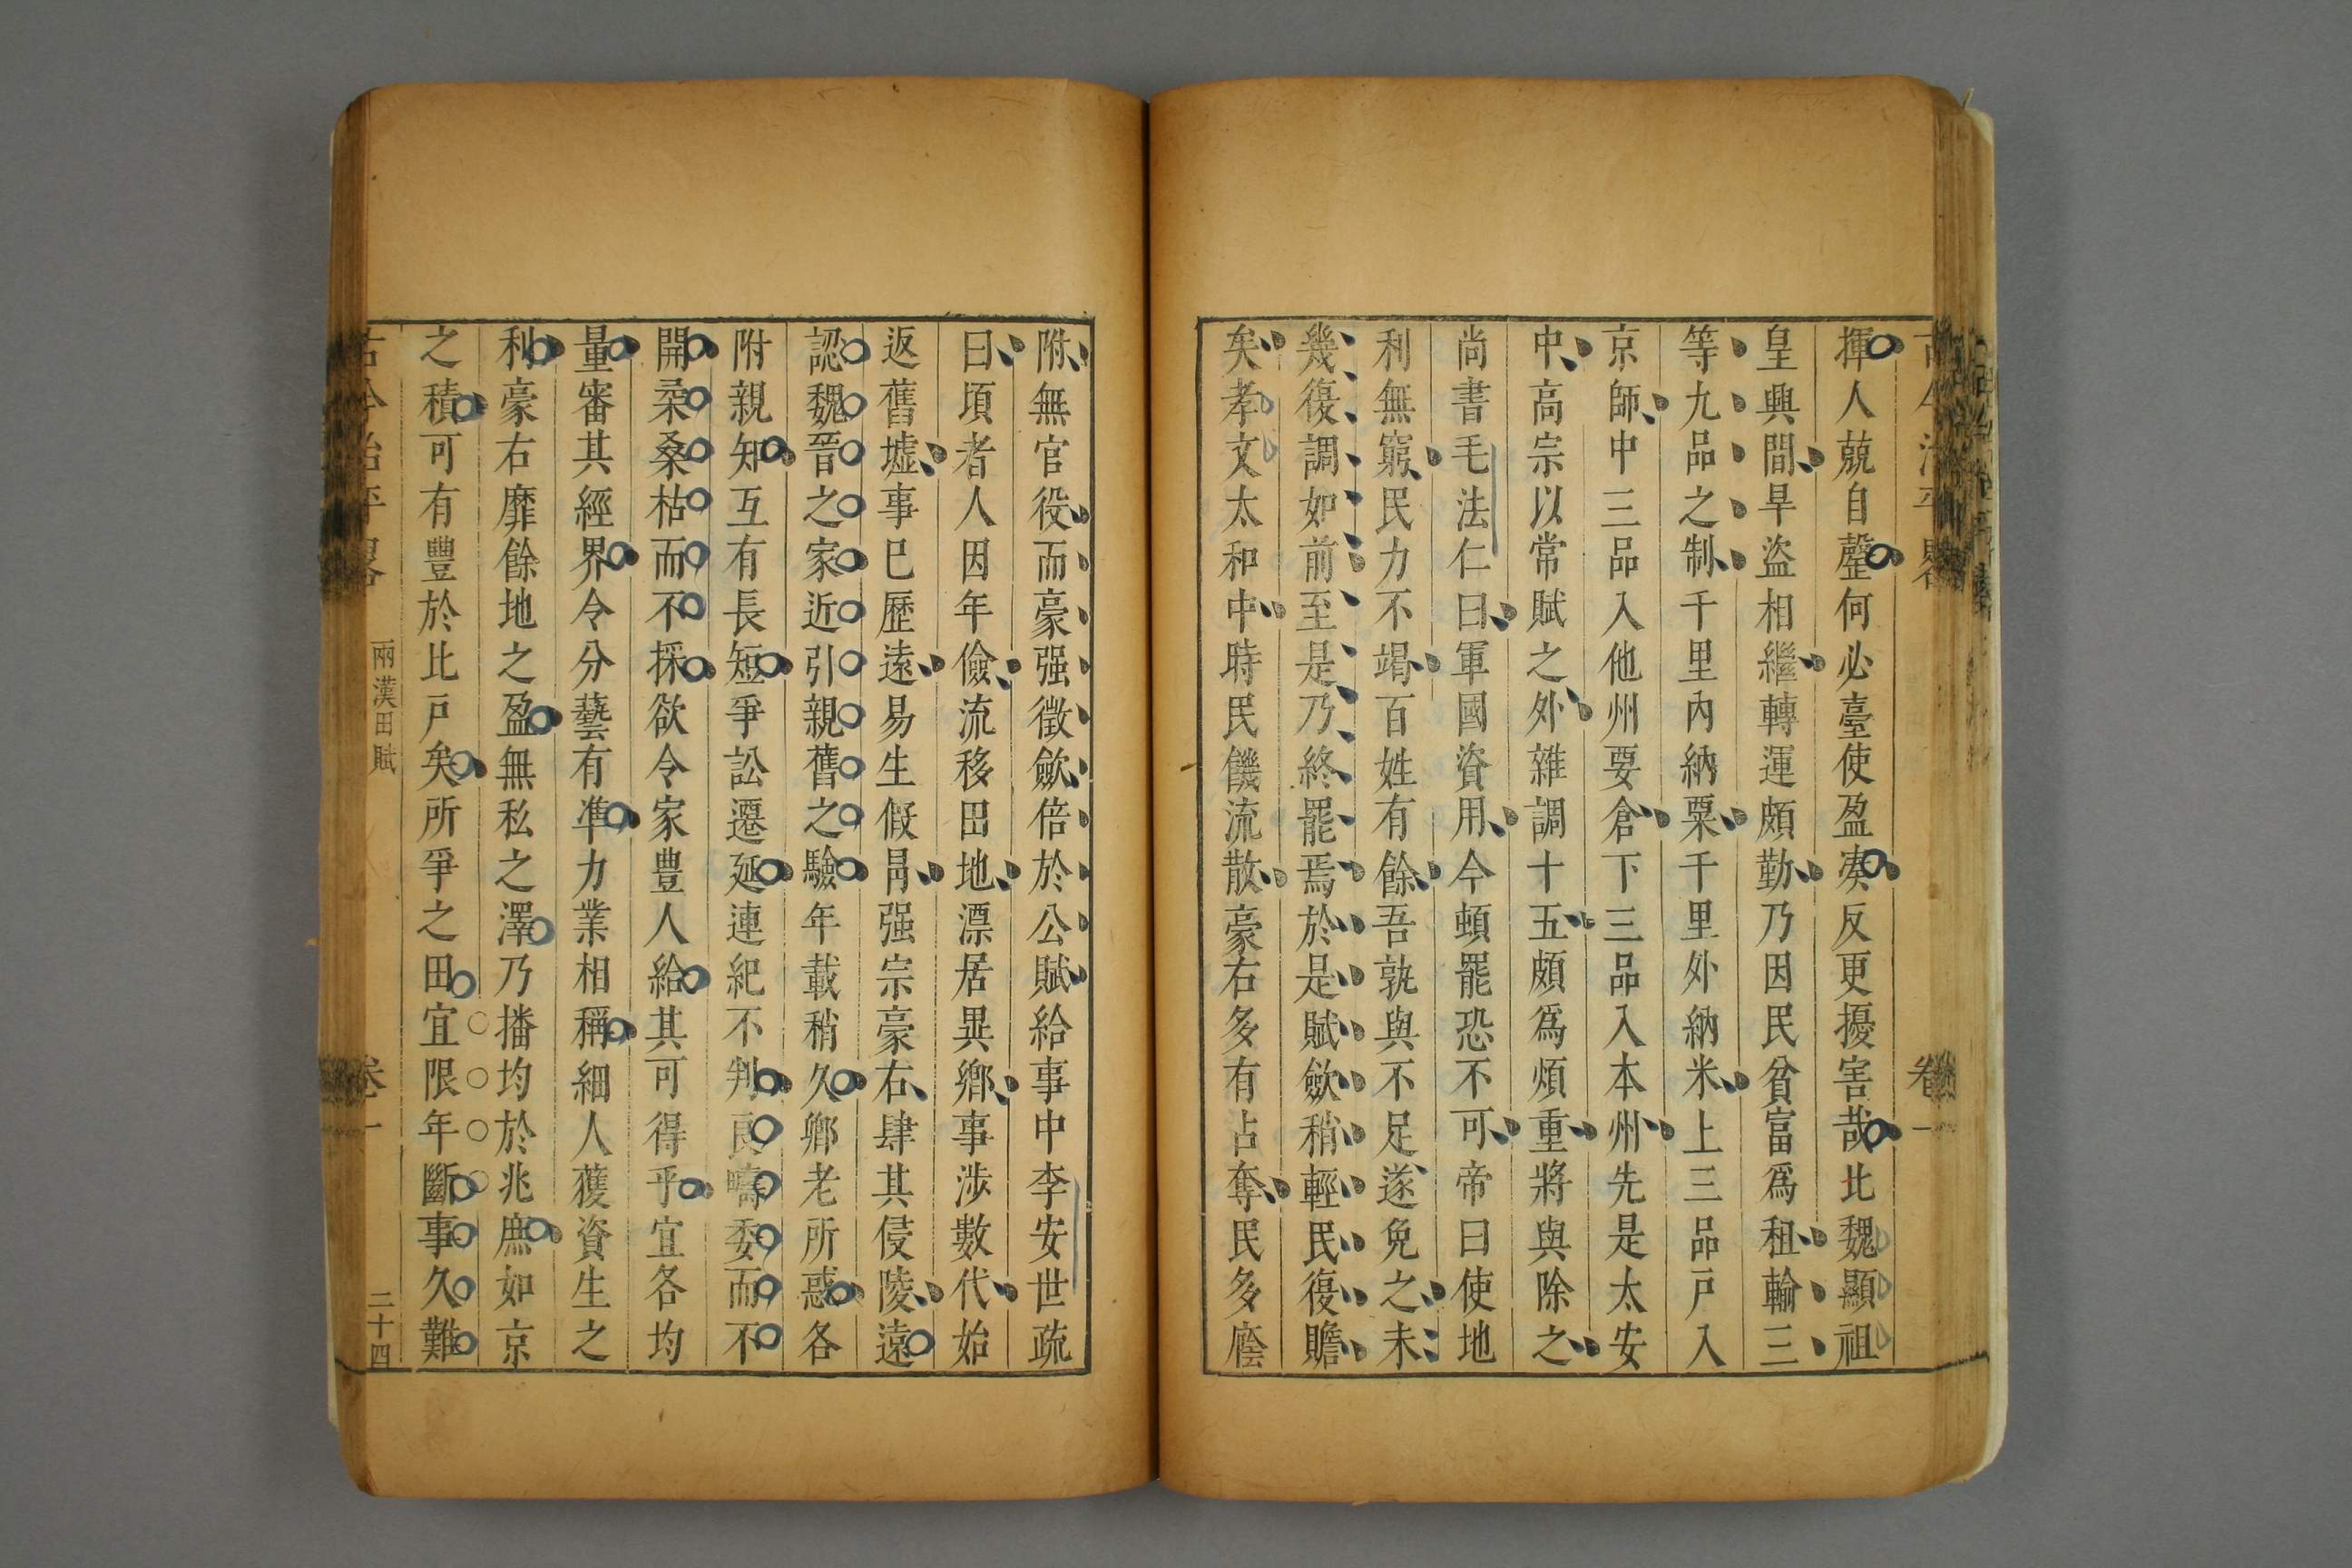 揮人兢自罄何必臺使盈湊反更擾害哉北魏顯祖
皇興間旱盜相繼轉運頗勤乃因民貧富爲租輸三
等九品之制千里內納粟千里外納米上三品戸入
京師中三品入他州要倉下三品入本州先是太安
中高宗以常賦之外雜調十五頗爲煩重將與除之
尚書毛法仁曰軍國資用今頓罷恐不可帝曰使地
利無窮民力不竭百姓有餘吾孰與不足遂免之未
幾復調如前至是乃終罷焉於是賦歛稍輕民復贍
矣孝文太和中時民饑流散豪右多有占奪民多廕
附無官役而豪强徵歛倍於公賦給事中李安世疏
曰頃者人因年儉流移田地漂居異鄉事涉數代始
返舊墟事已歷遠易生假冐强宗豪右肆其侵陵遠
認魏晉之家近引親舊之驗年載稍久鄉老所惑各
附親知互有長短爭訟遷延連紀不判良疇委而不
開柔桑枯而不採欲令家豊人給其可得乎宜各均
量審其經界令分藝有準力業相稱細人獲資生之
利豪右靡餘地之盈無私之澤乃播均於兆庶如京
之積可有豐於比戸矣所爭之田宜限年斷事久難
古今治平畧 兩漢田賦 卷一 二十四